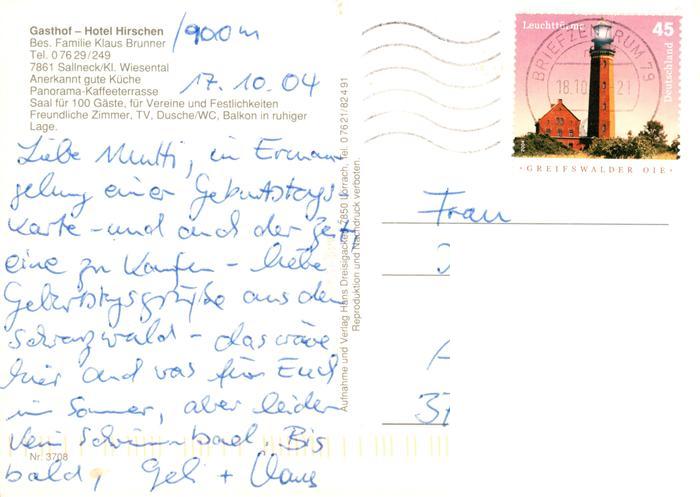 Gasthof – Hotel Hirschen
Bes. Familie Klaus Brunner
Tel. 0 76 29 / 249
7861 Sallneck/Kl. Wiesental
Anerkannt gute Küche
Panorama-Kaffeeterrasse
Saal für 100 Gäste, für Vereine und Festlichkeiten
Freundliche Zimmer, TV, Dusche/WC, Balkon in ruhiger
Lage.
/900m
17.10.04
Liebe Mutti, in Erman
gelung einer Geburtstags
karte - und auch der Zeit,
eine zu kaufen - liebe
Geburtstagsgrüße aus dem
Schwarzwald - das wäre
hier auch was für Euch
im Sommer, aber leider
kein Schwimmbad. Bis
bald, Geli + Klaus
Nr. 3708
Aufnahme und Verlag Hans Dreisigacker, 7850 Lörrach, Tel. 07621/82491
Reproduktion und Nachdruck verboten.
Leuchttürme
45
Deutschland
2004
BRIEFZENTRUM 79
18.10 -21
· GREIFSWALDER OIE ·
Frau